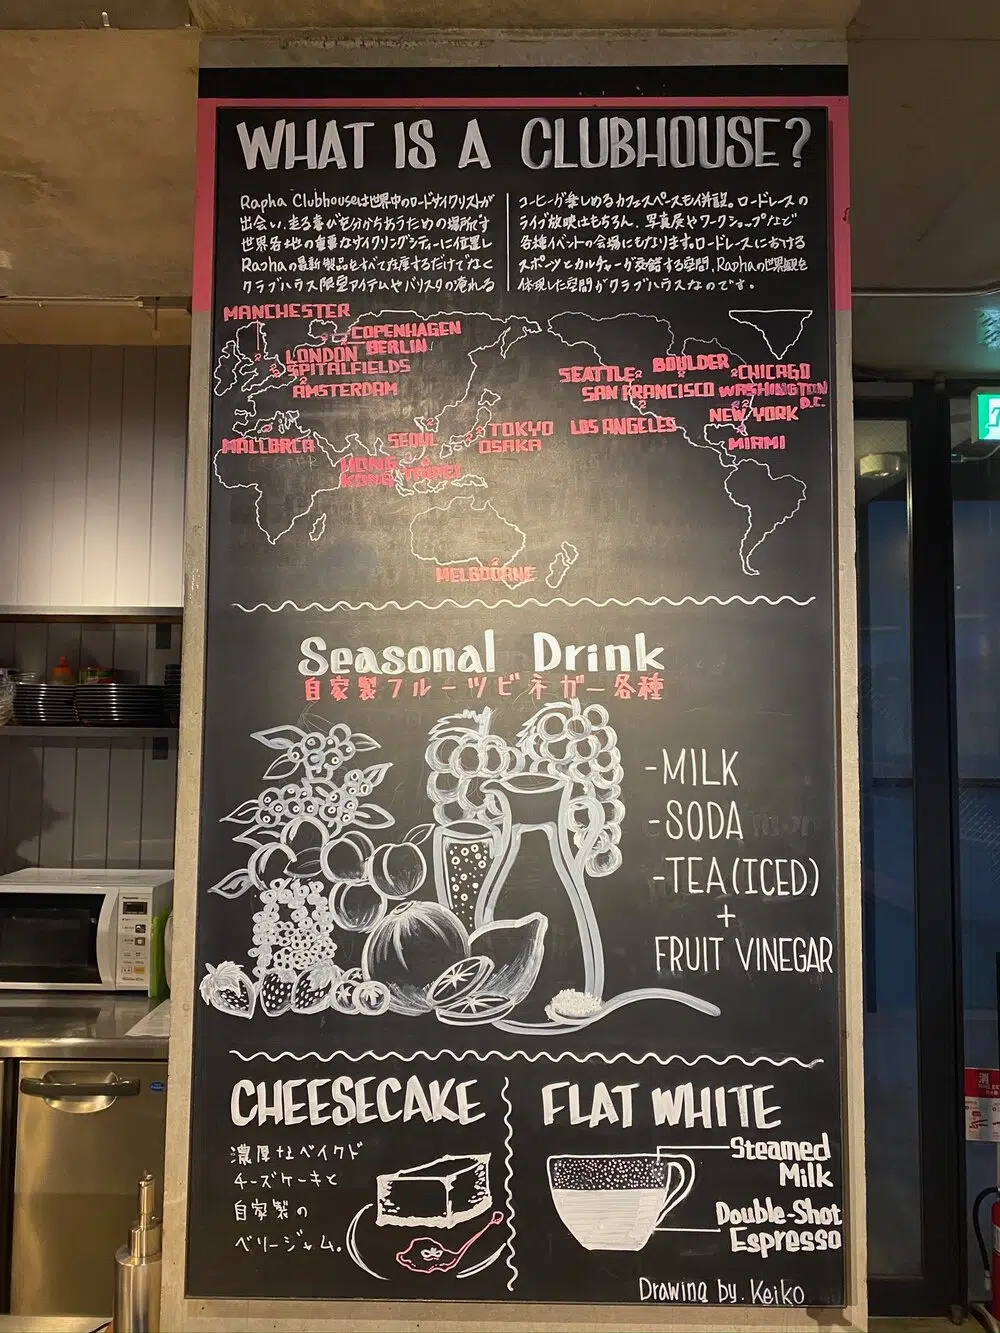 WHAT IS A CLUBHOUSE?
Rapha Clubhouseは世界中のロードサイクリストが
出会い、走る喜びを分かちあうための場所です
世界各地の重要なサイクリングシティーに位置し
Raphaの最新製品をすべて在庫するだけでなく
クラブハウス限定アイテムやバリスタの淹れる
コーヒーが楽しめるカフェスペースも併設。ロードレースの
ライブ放映はもちろん、写真展やワークショップなど
各種イベントの会場にもなります。ロードレースにおける
スポーツとカルチャーが交錯する空間、Raphaの世界観を
体現した空間がクラブハウスなのです。
MANCHESTER
COPENHAGEN
LONDON
BERLIN
SPITALFIELDS
AMSTERDAM
MALLORCA
SEOUL
TOKYO
OSAKA
HONG
KONG
TAIPEI
MELBOURNE
SEATTLE
BOULDER
CHICAGO
SAN FRANCISCO
WASHINGTON
D.C.
NEW YORK
LOS ANGELES
MIAMI
Seasonal Drink
自家製フルーツビネガー各種
-MILK
-SODA
-TEA(ICED)
+
FRUIT VINEGAR
CHEESECAKE
濃厚なベイクド
チーズケーキと
自家製の
ベリージャム。
FLAT WHITE
Steamed
Milk
Double-Shot
Espresso
Drawing by. Keiko